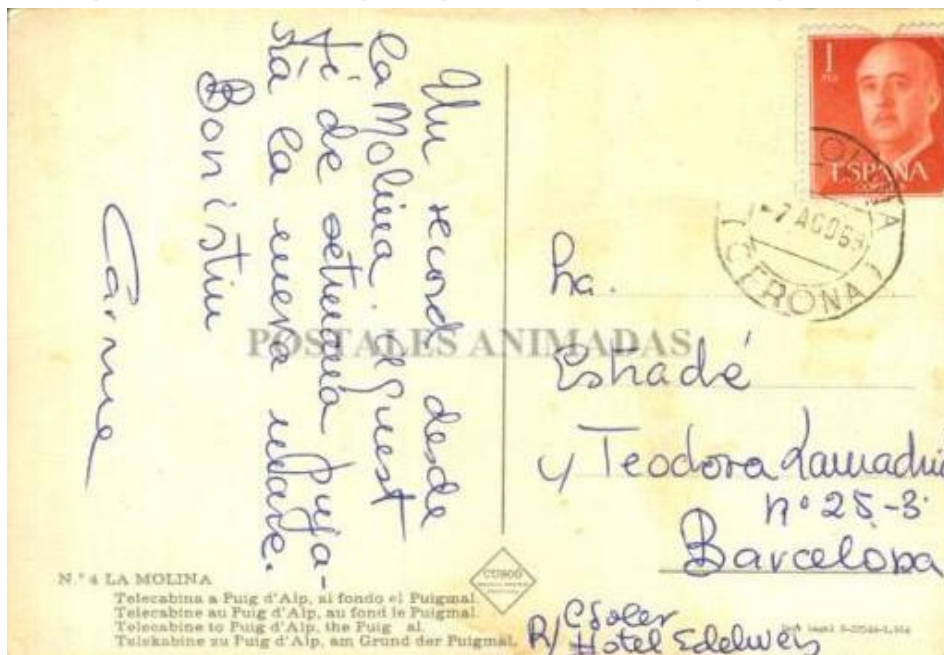 Un record desde
la Molina. Aquest
fi de setmana puja-
rà la meva mare.
Bon istiu
Carme
1
PTA
ESPAÑA
CORREOS
7 AGO 69
(GERONA)
POSTALES ANIMADAS
Sra.
Estradé
c/ Teodora Lamadrid
nº 25-3
Barcelona
N.º 4 LA MOLINA
Telecabina a Puig d'Alp, al fondo el Puigmal.
Telecabine au Puig d'Alp, au fond le Puigmal.
Telecabine to Puig d'Alp, the Puig al.
Telekabine zu Puig d'Alp, am Grund der Puigmal.
CUSCÓ
R/ C Soler
Hotel Edelweis